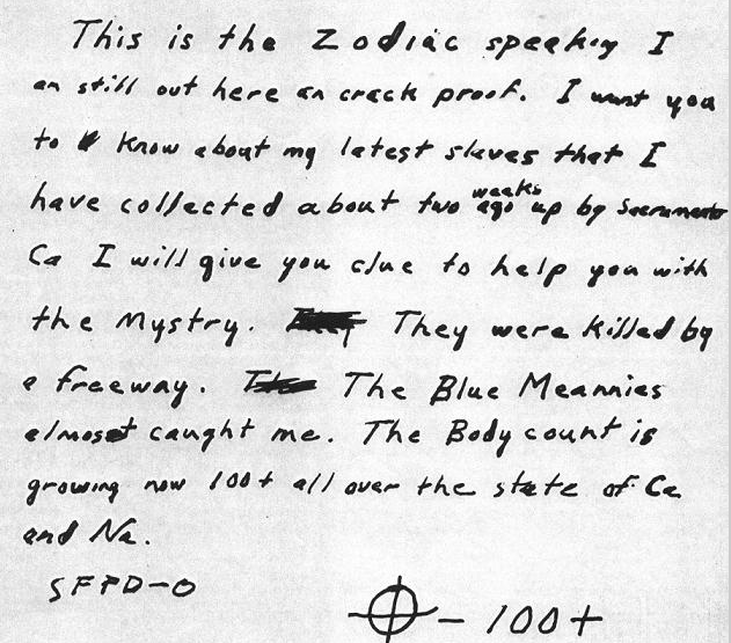 This is the Zodiac speaking I
an still out here an crack proof. I want you
to know about my latest slaves that I
have collected about two weeks ago up by Sacramento
Ca I will give you clue to help you with
the Mystry. They were killed by
a freeway. The Blue Meannies
almoset caught me. The Body count is
growing now 100+ all over the state of Ca
and Na.
SFPD-0
- 100+